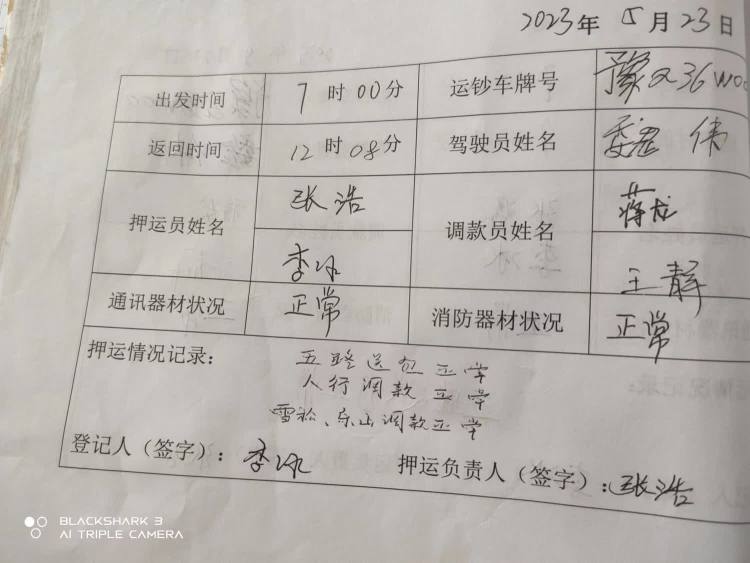 2023年 5月23日
出发时间 7时00分 运钞车牌号
返回时间 12时08分 驾驶员姓名 委宏 伟
押运员姓名 张浩 调款员姓名 蒋龙
李冰 王静
通讯器材状况 正常 消防器材状况 正常
押运情况记录: 五路送包正常
人行调款正常
雪松、乐山调款正常
登记人(签字): 李冰 押运负责人(签字): 张浩
BLACKSHARK 3
AI TRIPLE CAMERA